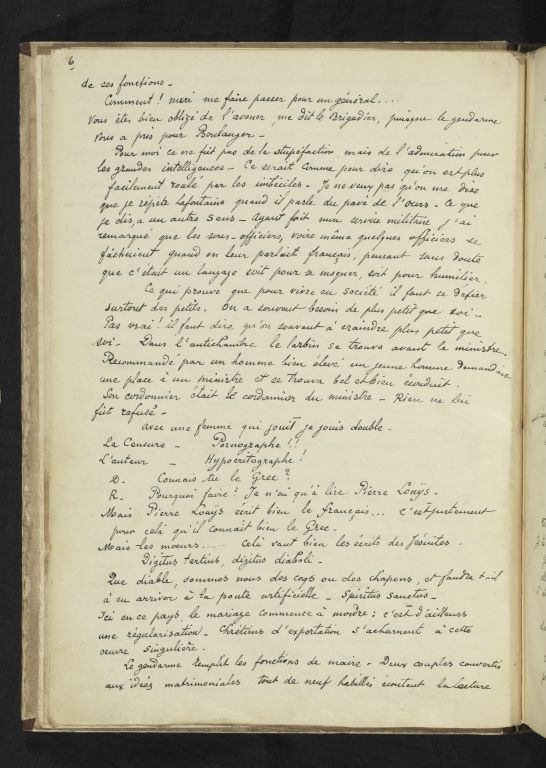 6
de ses fonctions _
Comment! moi me faire passer pour un général....
Vous êtes bien obligé de l'avouer, me dit le Brigadier, puisque le gendarme
vous a pris pour Boulanger _
Pour moi ce ne fût pas de la stupéfaction, mais de l'admiration pour
les grandes intelligences _ Ce serait comme pour dire qu'on est plus
facilement roulé par les imbéciles. Je ne veux pas qu'on me dise
que je répète Lafontaine quand il parle du pavé de l'ours _ Ce que
je dis, a un autre sens _ Ayant fait mon service militaire j'ai
remarqué que les sous-officiers, voire même quelques officiers se
fâchaient quand on leur parlait français, pensant sans doute
que c'était un langage soit pour se moquer, soit pour humilier.
Ce qui prouve que pour vivre en société il faut se défier
surtout des petits. On a souvent besoin de plus petit que soi _
Pas vrai! il faut dire qu'on souvent à craindre plus petit que
soi _ Dans l'antichambre le larbin se trouve avant le ministre.
Recommandé par un homme bien élevé un jeune homme demandait
une place à un ministre et se trouva bel et bien éconduit.
Son cordonnier était le cordonnier du ministre _ Rien ne lui
fût refusé _
Avec une femme qui jouit je jouis double _
La Censure _ Pornographe!!
L'auteur _ Hypocritographe!
D _ Connais tu le Grec?
R _ Pourquoi faire? Je n'ai qu'à lire Pierre Louÿs _
Mais Pierre Louÿs écrit bien le français... c'est justement
pour celà qu'il connait bien le Grec _
Mais les mœurs...... Celà vaut bien les écrits des Jésuites _
Digitus tertius, digitus diaboli _
Que diable, sommes nous des coqs ou des chapons, et faudra t-il
à en arriver à la ponte artificielle _ Spiritus sanctus _
Ici en ce pays, le mariage commence à mordre: c'est d'ailleurs
une régularisation _ Chrétiens d'exportation s'acharnent à cette
oeuvre singulière _
Le gendarme remplit les fonctions de maire _ Deux couples convertis
aux idées matrimoniales tout de neuf habillés écoutent la lecture